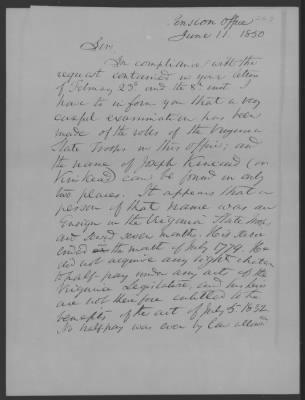 Pension Office
June 11. 1850
Sir,
In compliance with the
request contained in your letters
of February 23d and the 8th inst I
have to inform you that a very
careful examination has been
made of the rolls of the Virginia
State Troops in this office; and
the name of Joseph Kincead (or
Kinkead) can be found in only
two places. It appears that a
person of that name was an
Ensign in the Virginia State Troops
and served seven months. His term
ended in the month of July 1779. He
did not acquire any right
to half pay under any act of the
Virginia Legislature, and his heirs
are not therefore entitled to the
benefits of the act of July 5. 1832.
No half pay was ever by law allowed